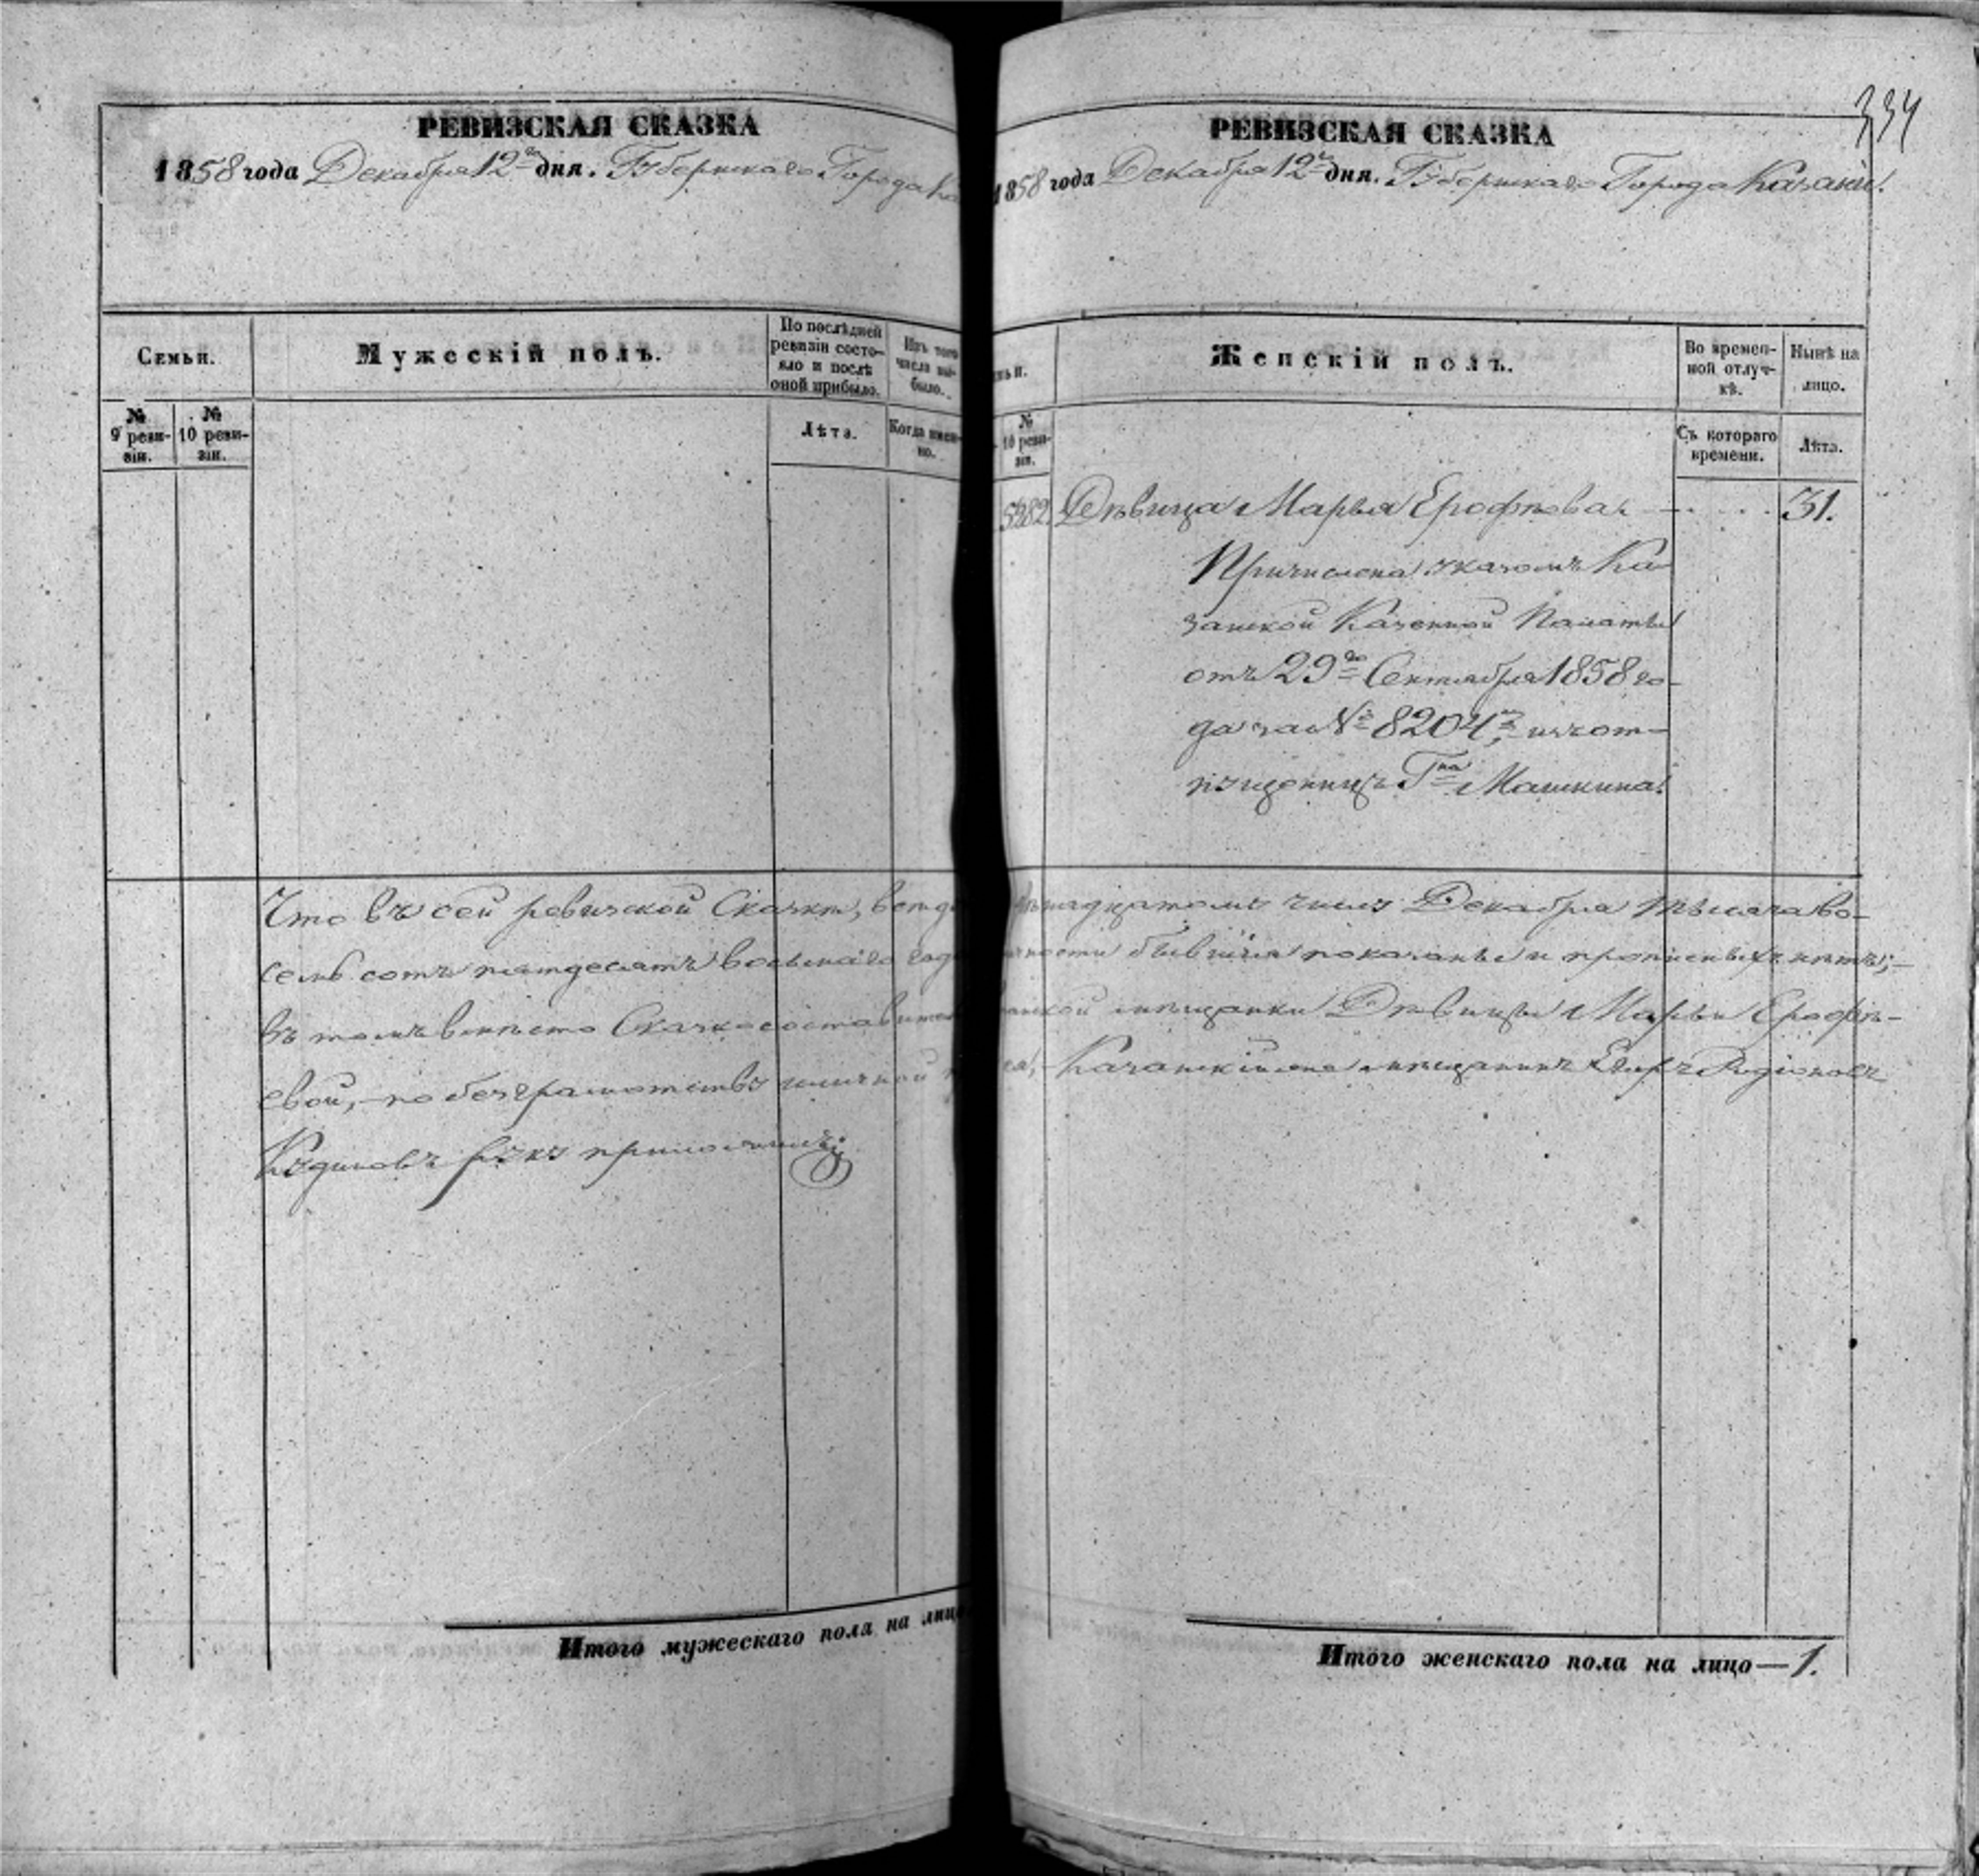 334
РЕВИЗСКАЯ СКАЗКА
1858 года Декабря 12го дня. Губернскаго Города Ка
Семьи.
Мужескій полъ.
По послѣдней ревизіи состо-
яло и послѣ оной прибыло.
Изъ того числа вы-
было.
№ 9 реви-
зіи.
№ 10 реви-
зіи.
Лѣта.
Когда имен-
но.
РЕВИЗСКАЯ СКАЗКА
1858 года Декабря 12го дня. Губернскаго Города Казани.
ьи.
Женскій полъ.
Во времен-
ной отлуч-
кѣ.
Нынѣ на лицо.
№ 10 реви-
зіи.
Съ котораго времени.
Лѣта.
Дѣвица Марья Ерофѣева 31.
Причислена указомъ Ка
занской Казенной Палаты
отъ 29го Сентября 1858 го-
да за № 8204, изъ от-
пущенницъ Гна Машкина.
Что въ сей ревизской Сказкѣ, въ дв надцатомъ числѣ Декабря мѣсяца во-
семь сотъ пятдесятъ восьмаго год ности бывшія показаны и прописныхъ нѣтъ;
въ томъ вмѣсто Сказкосоставител анской мѣщанки Дѣвицы Марьи Ерофѣ-
евой, по безграмотству личной Казанскій мѣщанинъ Егоръ Родіоновъ
руку приложилъ
Итого мужескаго пола на лицо
Итого женскаго пола на лицо — 1.